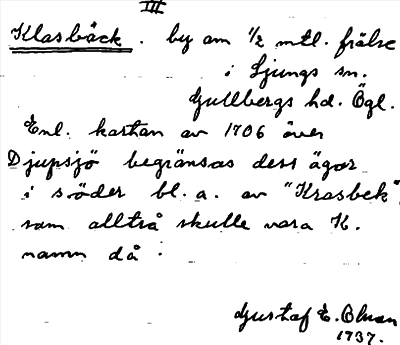 III
Klasbäck. by om 1/2 mtl. frälse
i Ljungs sn.
Gullbergs hd. Ögl.
Enl. kartan av 1706 över
Djupsjö begränsas dess ägor
i söder bl. a. av "Krasbek",
som alltså skulle vara K.
namn då.
Gustaf E. Olson
1737.